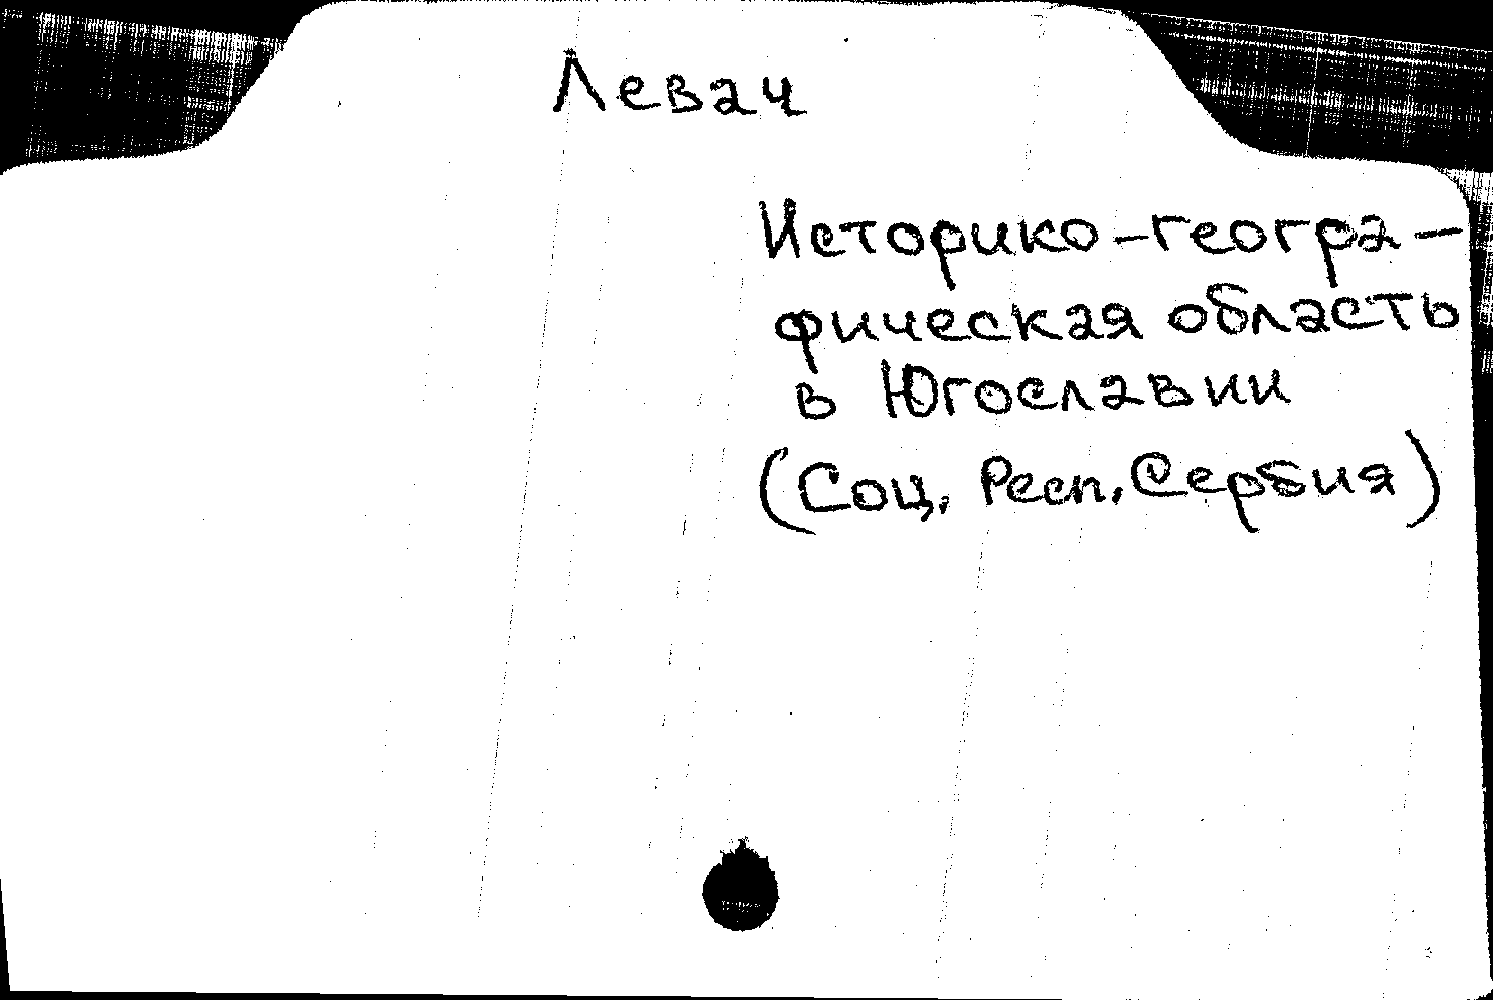 Левач
Историко-геогра-
фическая область
в Югославии
(Соц. Респ. Сербия)